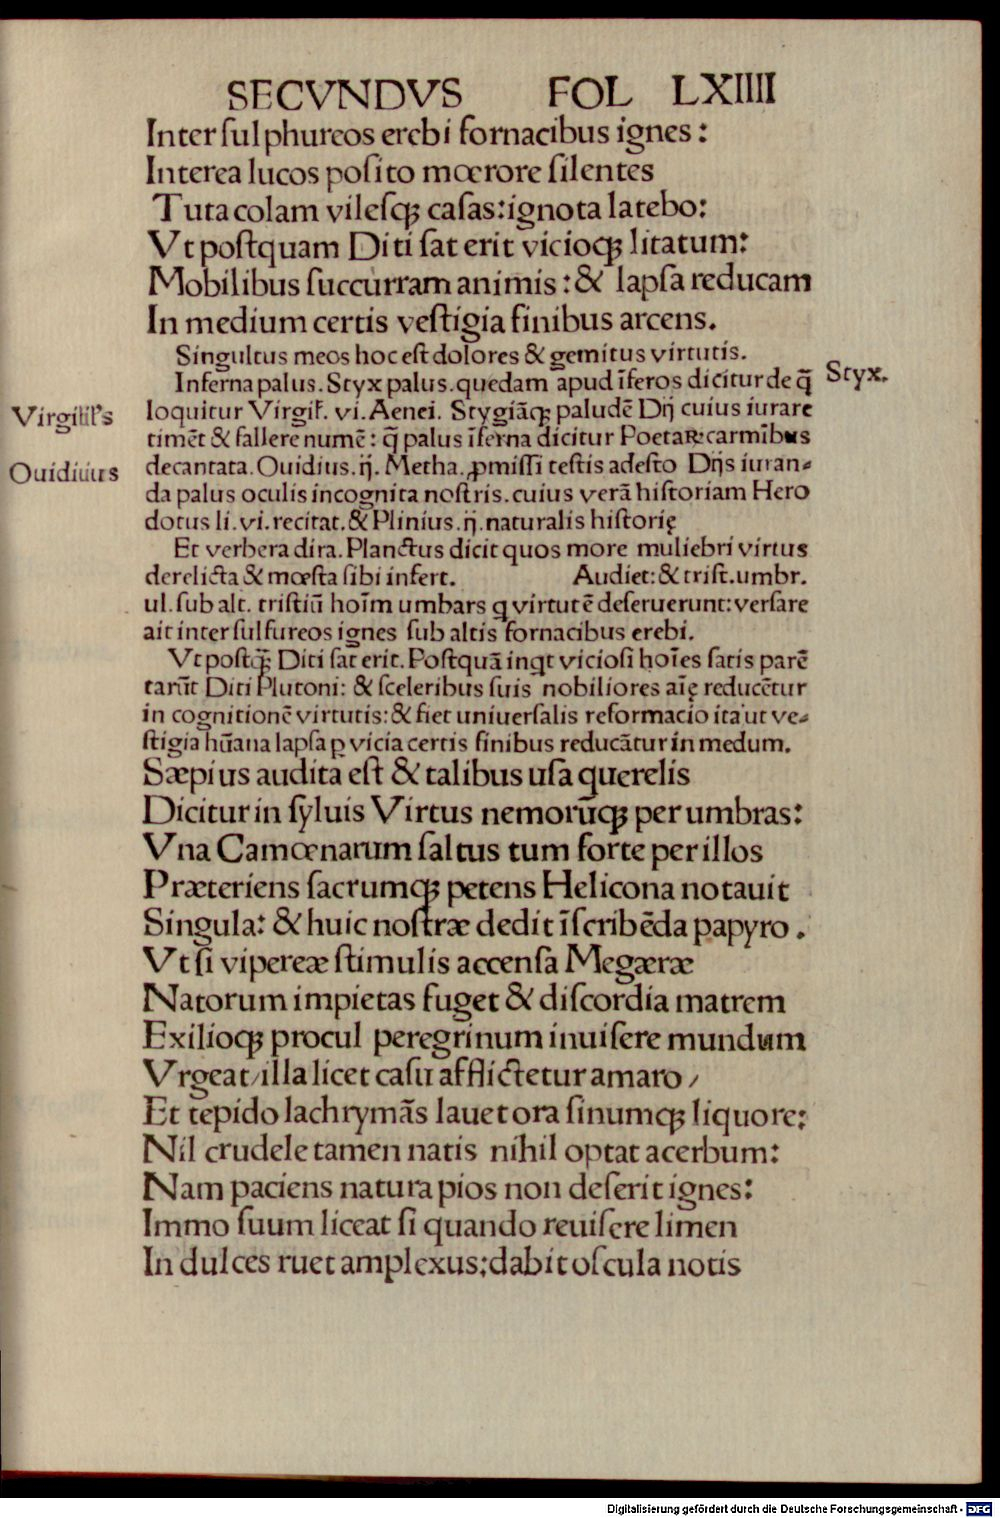 SECVNDVS FOL LXIIII
Inter ſulphureos erebi fornacibus ignes:
Interea lucos poſito mœrore ſilentes
Tuta colam vileſqꝫ caſas: ignota latebo:
Vt poſtquam Diti ſat erit vicioqꝫ litatum:
Mobilibus ſuccurram animis: & lapſa reducam
In medium certis veſtigia finibus arcens.
Singultus meos hoc eſt dolores & gemitus virtutis.
Inferna palus. Styx palus. quedam apud īferos dicitur de q̄
Styx.
loquitur Virgil̓. vi. Aenei. Stygiāqꝫ paludē Dij cuius iurare
Virgiliꝰs
timēt & fallere numē: q̄ palus īferna dicitur Poetaꝝ carmībus
decantata. Ouidius. ij. Metha. ꝓmiſſi teſtis adeſto Dijs iuran-
Ouidiuius
da palus oculis incognita noſtris. cuius verā hiſtoriam Hero
dotus li. vi. recitat. & Plinius. ij. naturalis hiſtorię
Et verbera dira. Planctus dicit quos more muliebri virtus
derelicta & mœſta ſibi infert. Audiet: & triſt. umbr.
ul. ſub alt. triſtiū hoīm umbars q virtutē deſeruerunt: verſare
ait inter ſulfureos ignes ſub altis fornacibus erebi.
Vt poſtq̄ꝫ Diti ſat erit. Poſtquā inqt vicioſi hoīes ſatis parē
tarūt Diti Plutoni: & ſceleribus ſuis nobiliores aīę reducētur
in cognitionē virtutis: & fiet uniuerſalis reformacio ita ut ve-
ſtigia hūana lapſa ꝑ vicia certis finibus reducātur in medum.
Sæpius audita eſt & talibus uſa querelis
Dicitur in ſyluis Virtus nemorūqꝫ per umbras:
Vna Camœnarum ſaltus tum forte per illos
Præteriens ſacrumqꝫ petens Helicona notauit
Singula: & huic noſtræ dedit īſcribēda papyro.
Vt ſi vipereæ ſtimulis accenſa Megæræ
Natorum impietas fuget & diſcordia matrem
Exilioqꝫ procul peregrinum inuiſere mundum
Vrgeat/illa licet caſu afflictetur amaro/
Et tepido lachrymās lauet ora ſinumqꝫ liquore;
Nil crudele tamen natis nihil optat acerbum:
Nam paciens natura pios non deſerit ignes:
Immo ſuum liceat ſi quando reuiſere limen
In dulces ruet amplexus; dabit oſcula notis
Digitalisierung gefördert durch die Deutsche Forschungsgemeinschaft - DFG